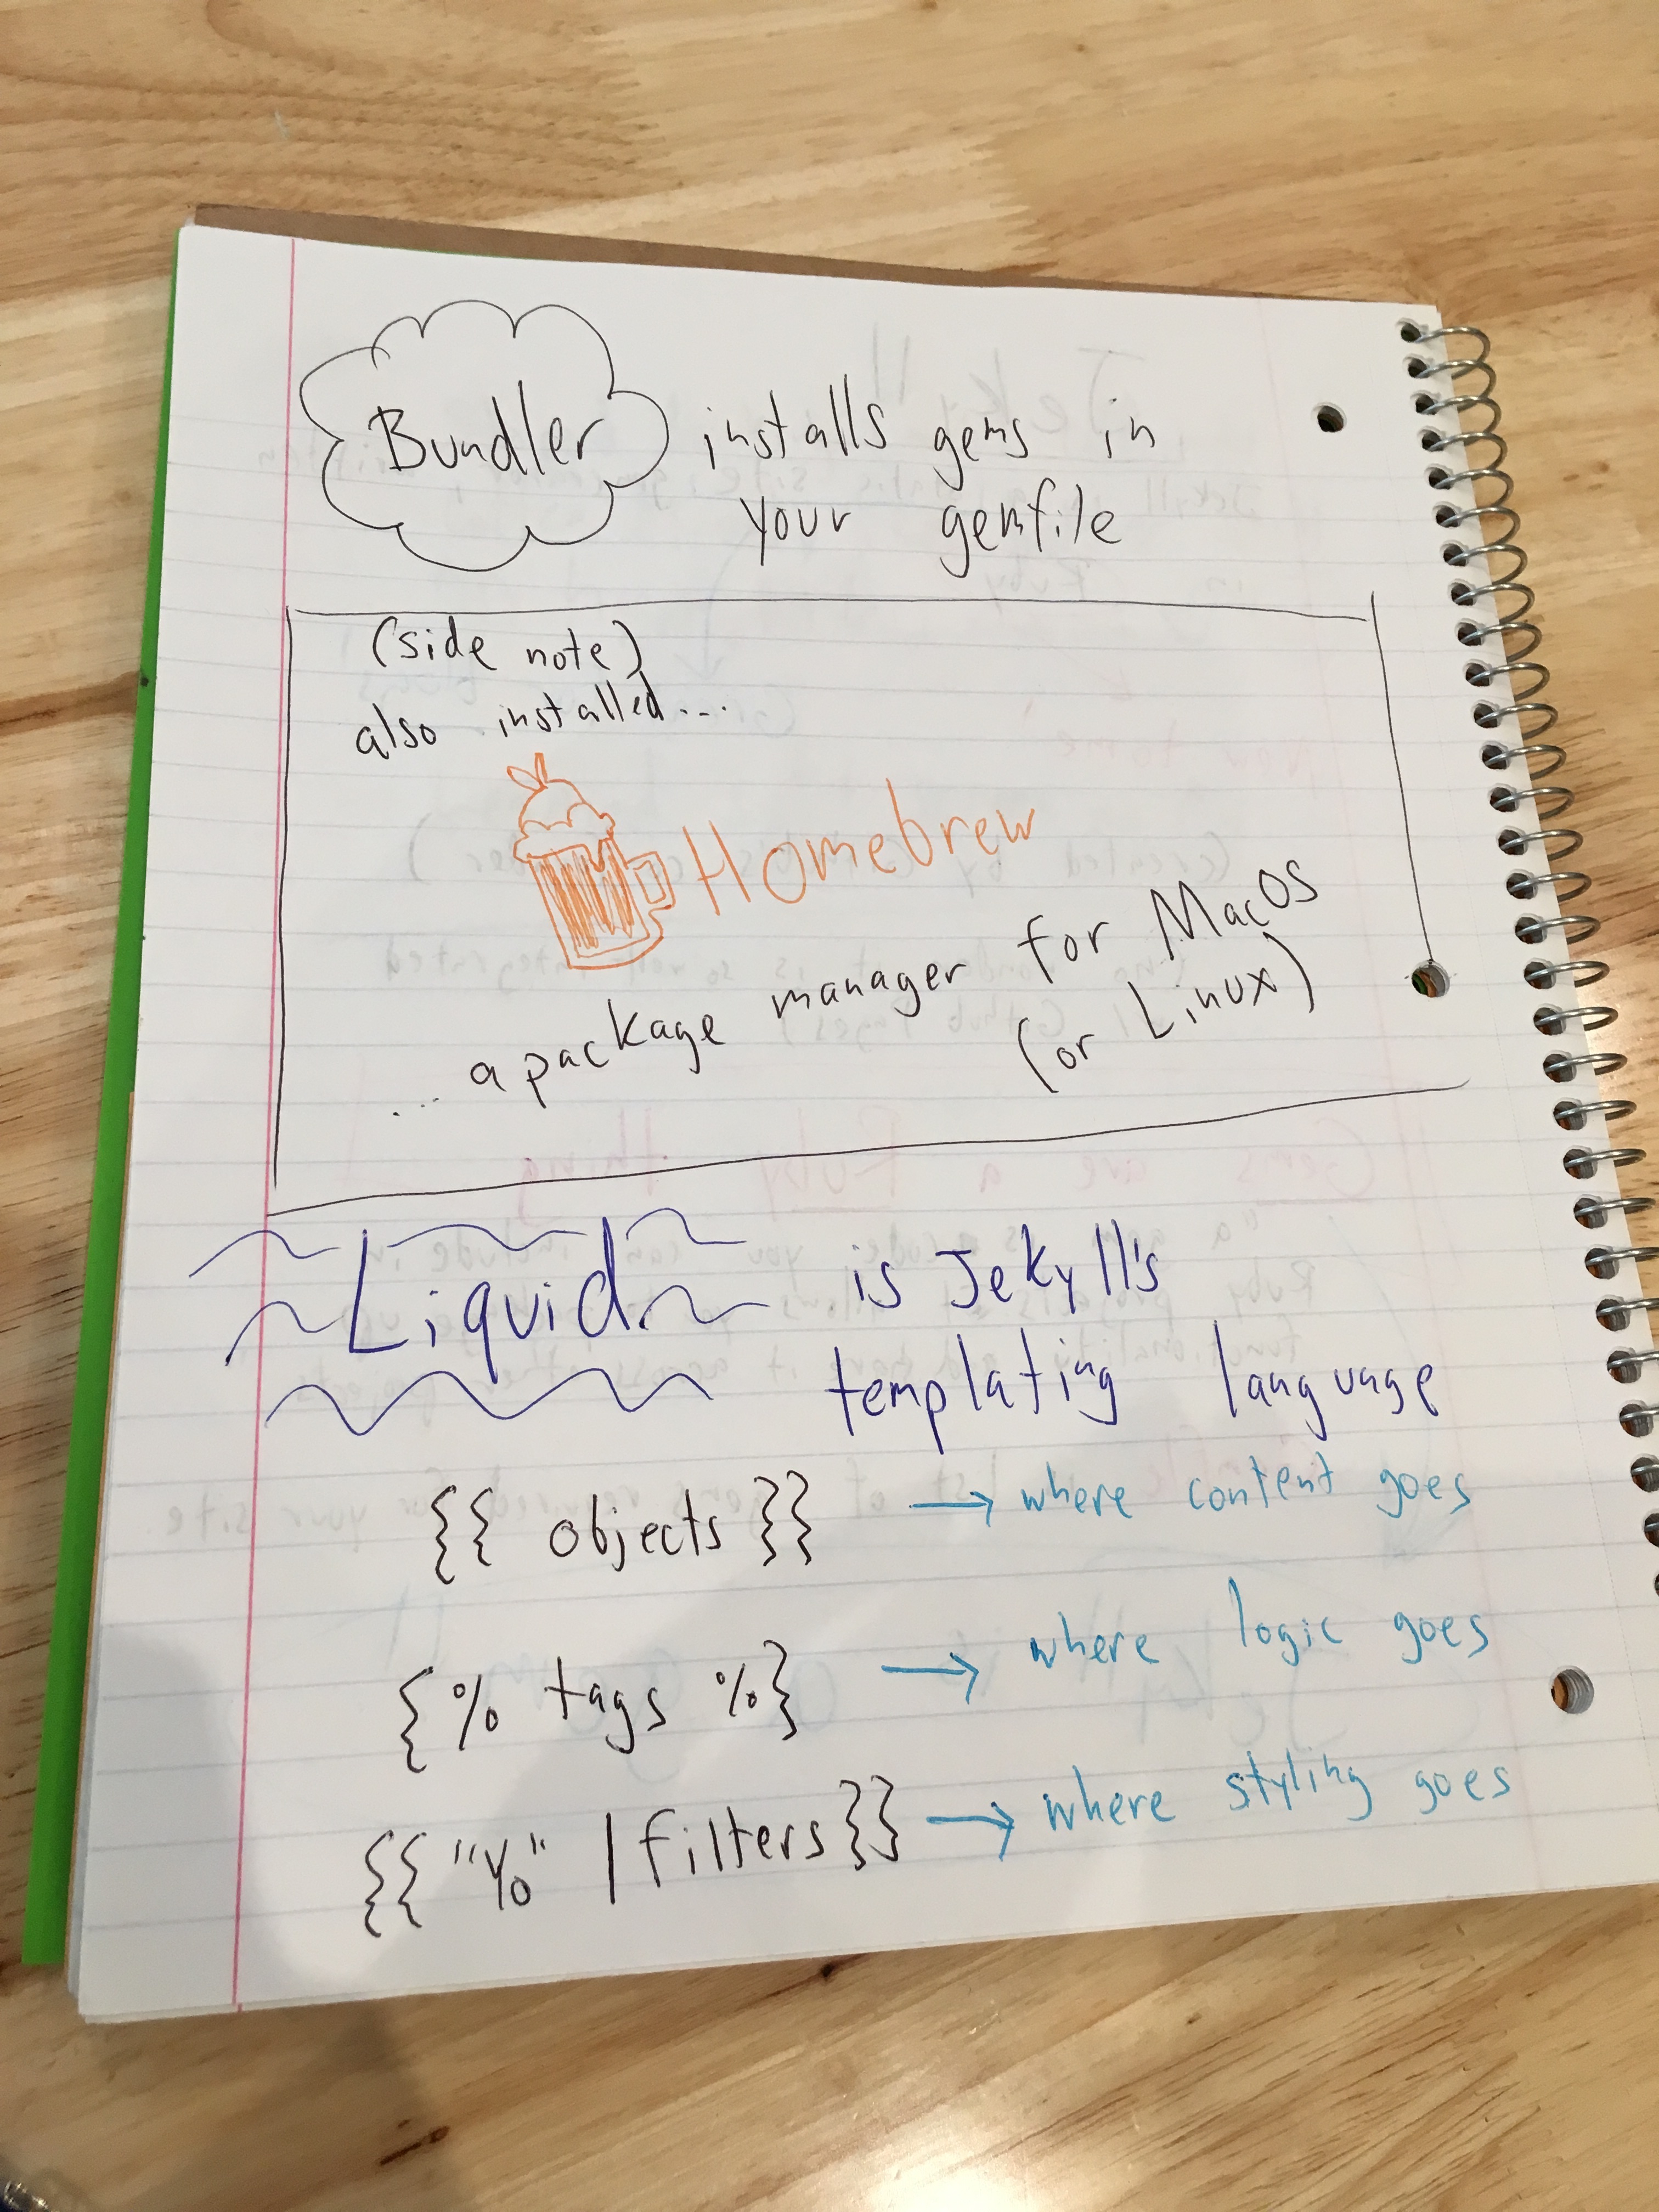 Bundler installs gems in
your gemfile
(side note)
also installed...
Homebrew
... a package manager for MacOS
(or Linux)
Liquid is Jekyll's
templating language
{{ objects }} → where content goes
{% tags %} → where logic goes
{{ "%" | filters }} → where styling goes